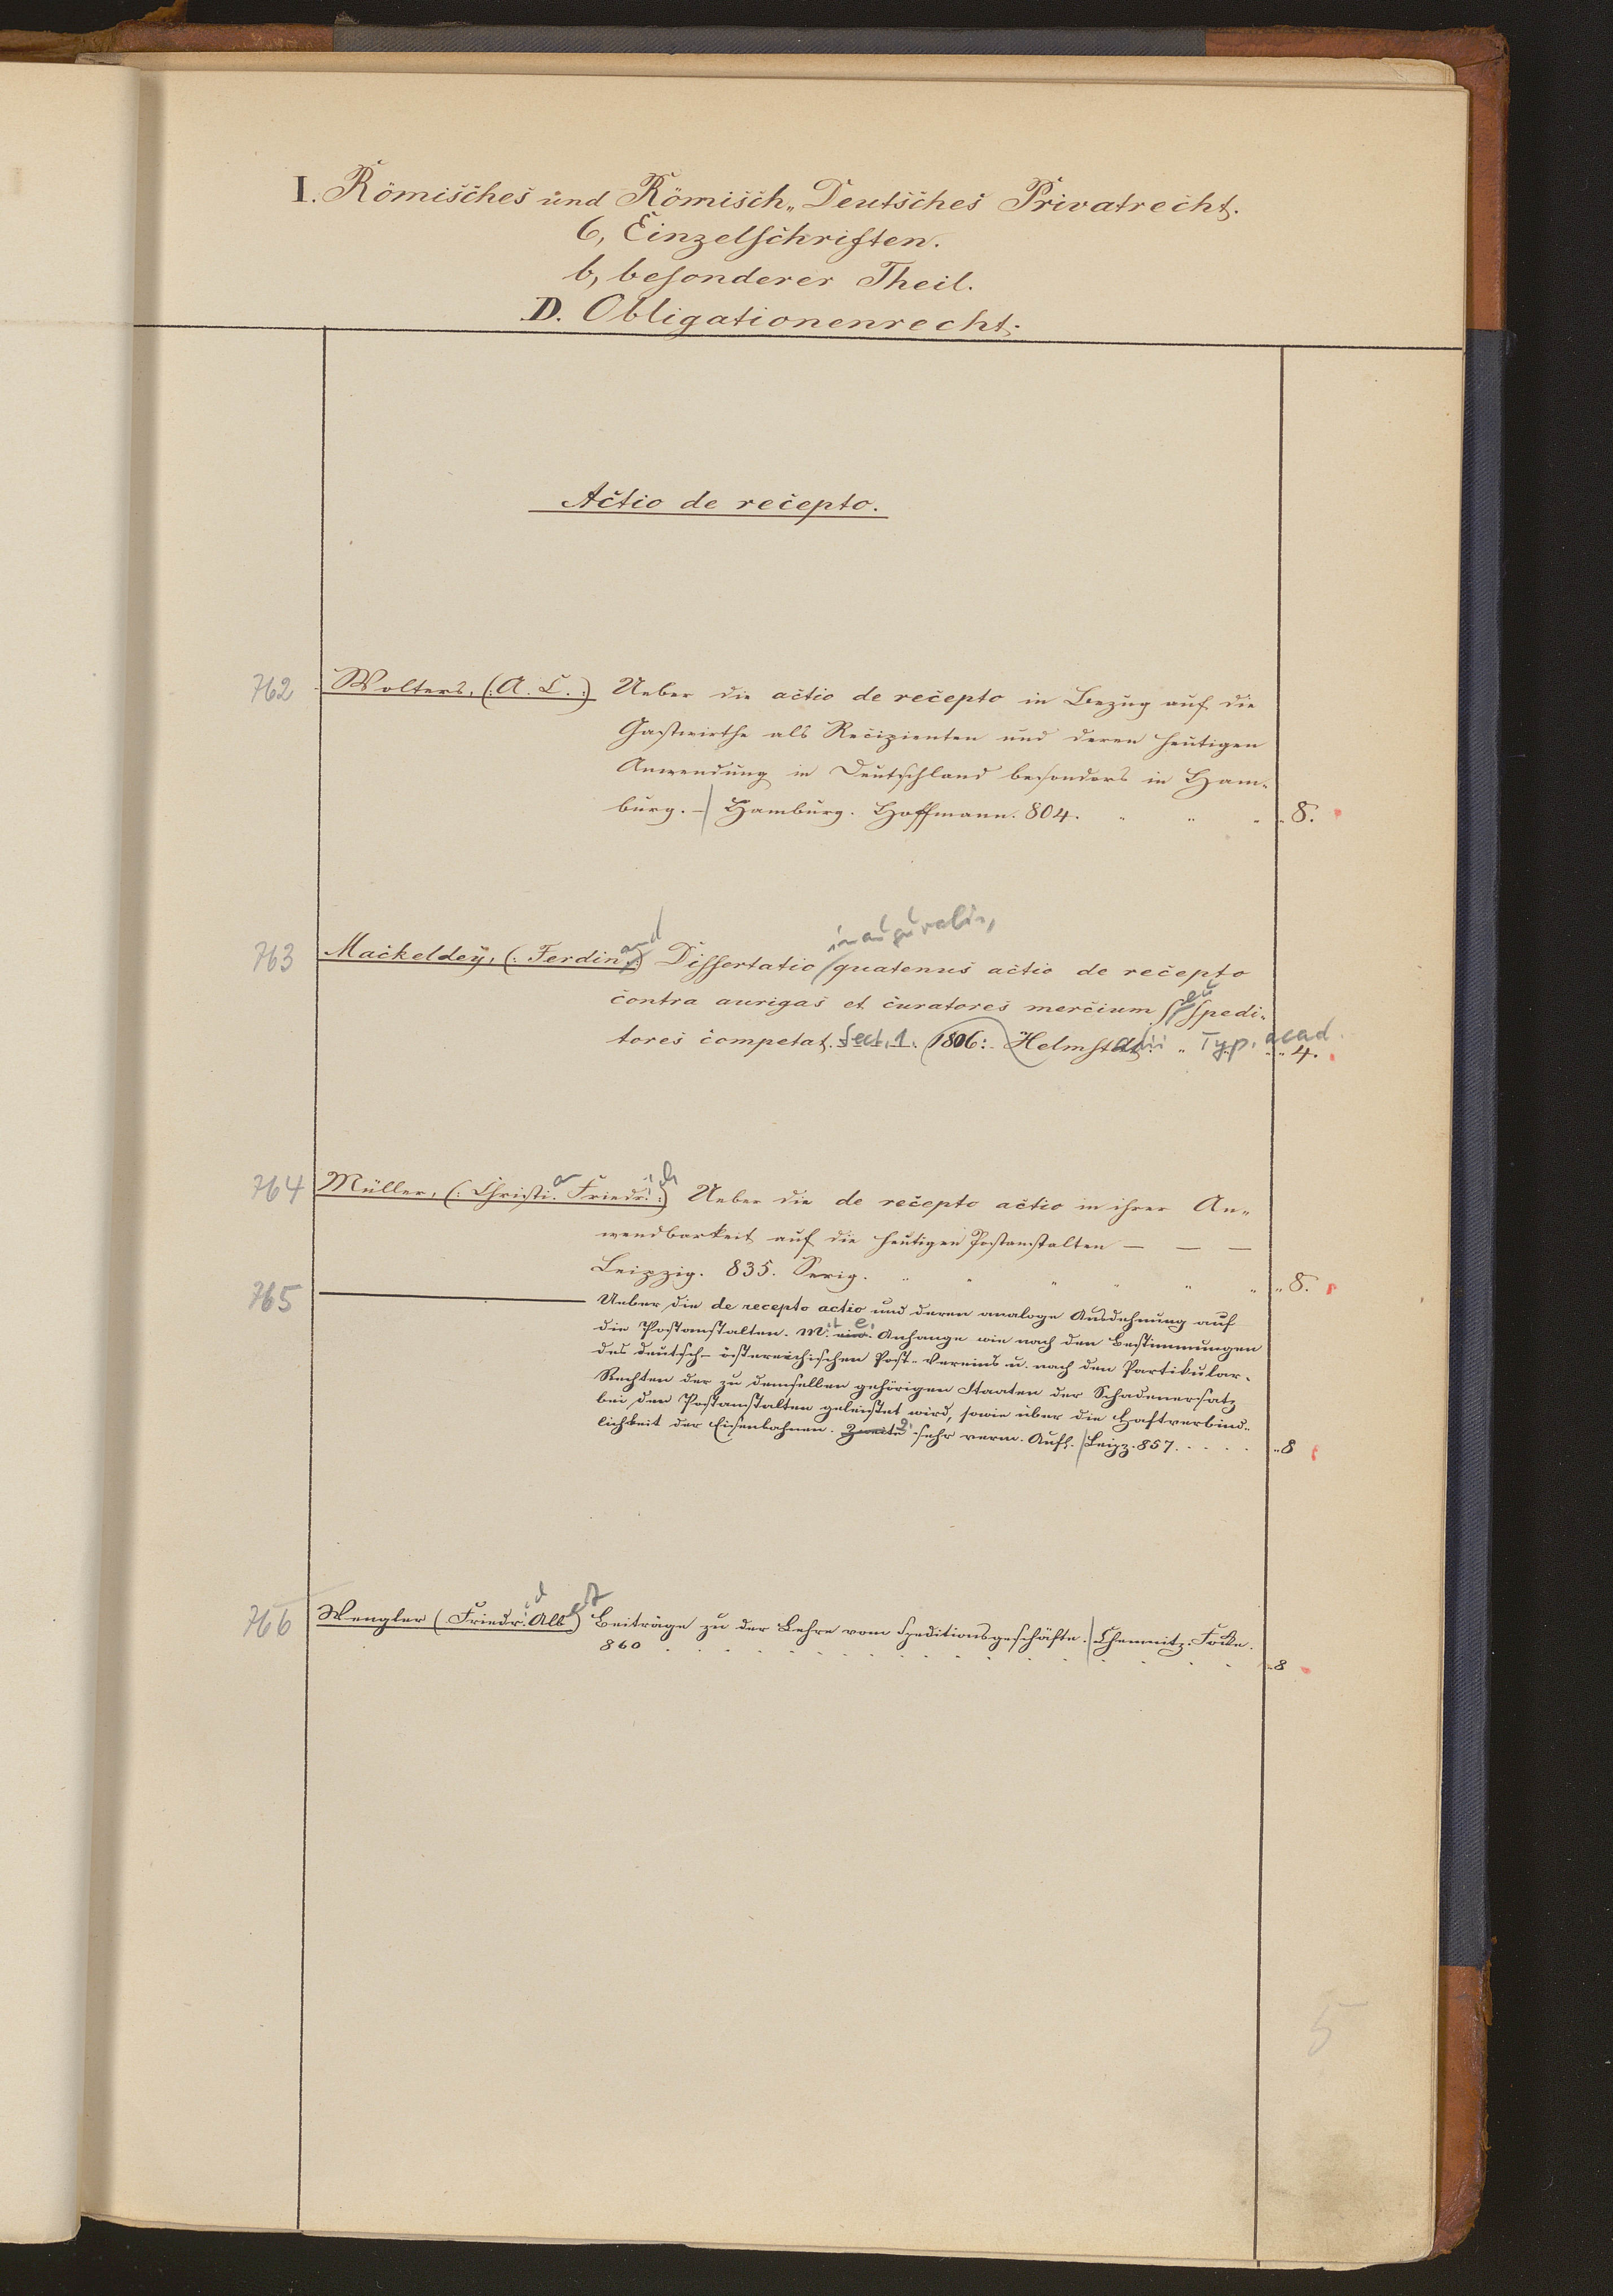 I. Römisches und Römisch„Deutsches Privatrecht.
6, Einzelschriften.
b, besonderer Theil.
D. Obligationenrecht.
Actio de recepto.
762 Wolters, (: A. C. :) Ueber die actio de recepto in Bezug auf die
Gastwirthe als Recipienten und deren heutigen
Anwendung in Deutschland besonders in Ham-
burg. – Hamburg. Hoffmann. 804. 8.
inauguralis,
763 Mackeldey, (: Ferdinand :) Dissertatio quatenus actio de recepto
contra aurigas et curatores mercium seu spedi-
tores competat. Sect. 1. 1806: Helmstadii Typ. acad. 4.
764 Müller, (: Christian Friedrich :) Ueber die de recepto actio in ihrer An„
wendbarkeit auf die heutigen Postanstalten — — —
Leipzig. 835. Serig. 8.
765 ——— Ueber die de recepto actio und deren analoge Ausdehnung auf
die Postanstalten. Mit e. Anhange wie nach den Bestimmungen
des deutsch-östereichischen Post-Vereins u. nach den Partikular-
Rechten der zu demselben gehörigen Staaten der Schadenersatz
bei den Postanstalten geleistet wird, sowie über die Haftverbind-
lichkeit der Eisenbahnen. Zweite 2. sehr verm. Aufl. Leipz. 857. . . . . 8
766 Wengler (Friedrich Albert) Beiträge zu der Lehre vom Speditionsgeschäfte. Chemnitz. Focke.
860 . . . . . . . . 8
5